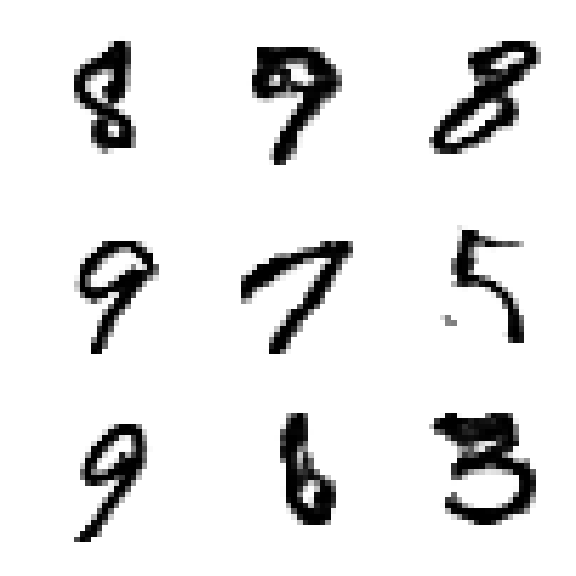 8 9 8
9 7 5
9 6 3